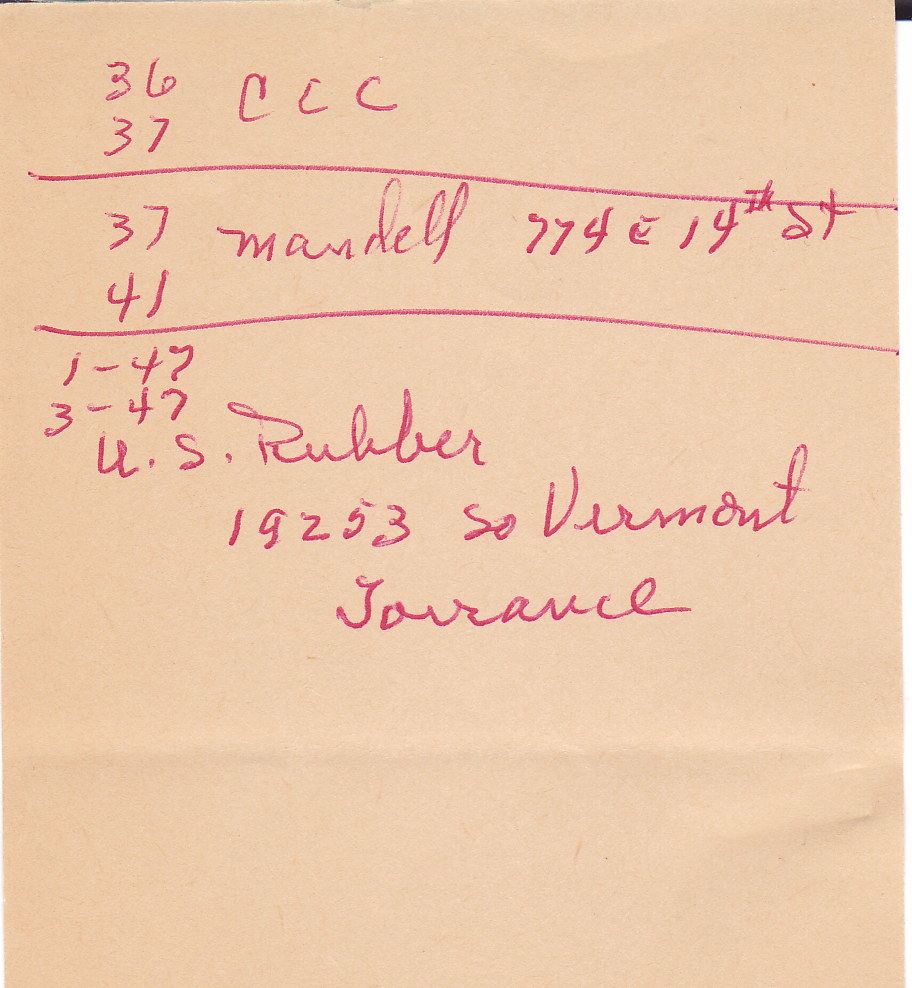 36 CCC
37
37 Mandell 774 E 14th St
41
1-47
3-47
U.S. Rubber
19253 So Vermont
Torrance